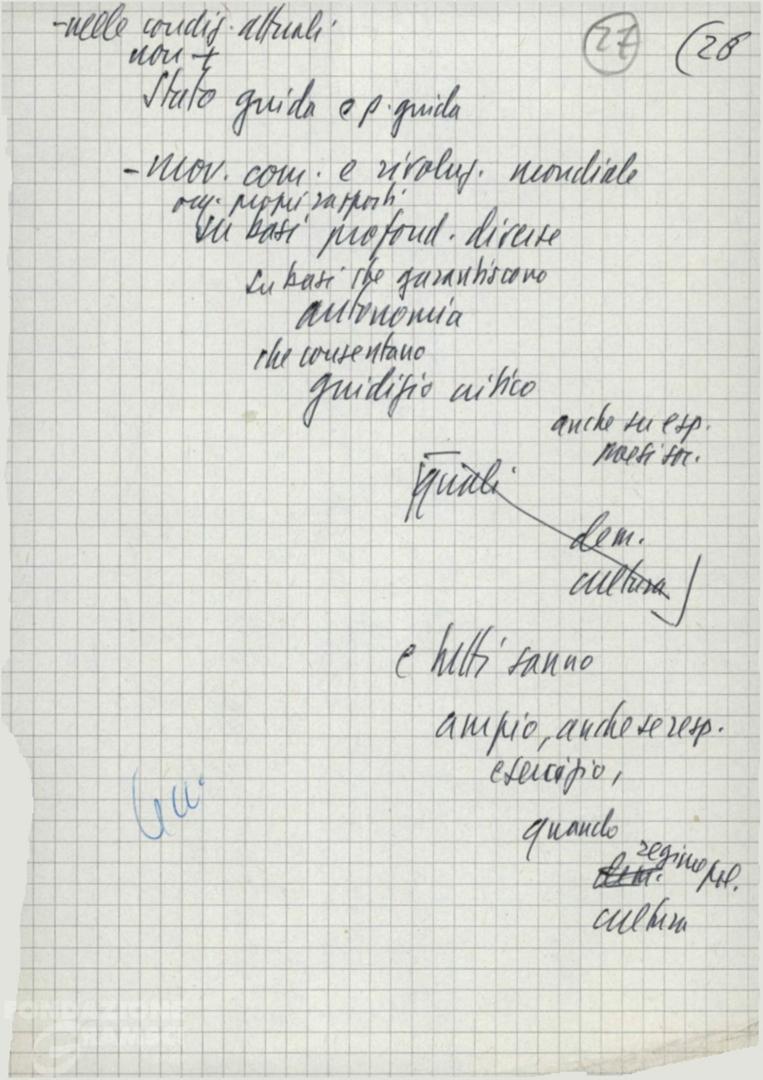 -nelle condiz. attuali
27
(28
non +
Stato guida e p. guida
-mov. com. e rivoluz. mondiale
occ. propri rapporti
su basi profond. diverse
su basi che garantiscono
autonomia
che consentano
giudizio critico
anche su esp.
paesi soc.
quali
dem.
cultura
e tutti sanno
ampio, anche se resp.
esercizio,
quando
regime pol.
dem.
cultura
FONDAZIONE
GRAMSCI